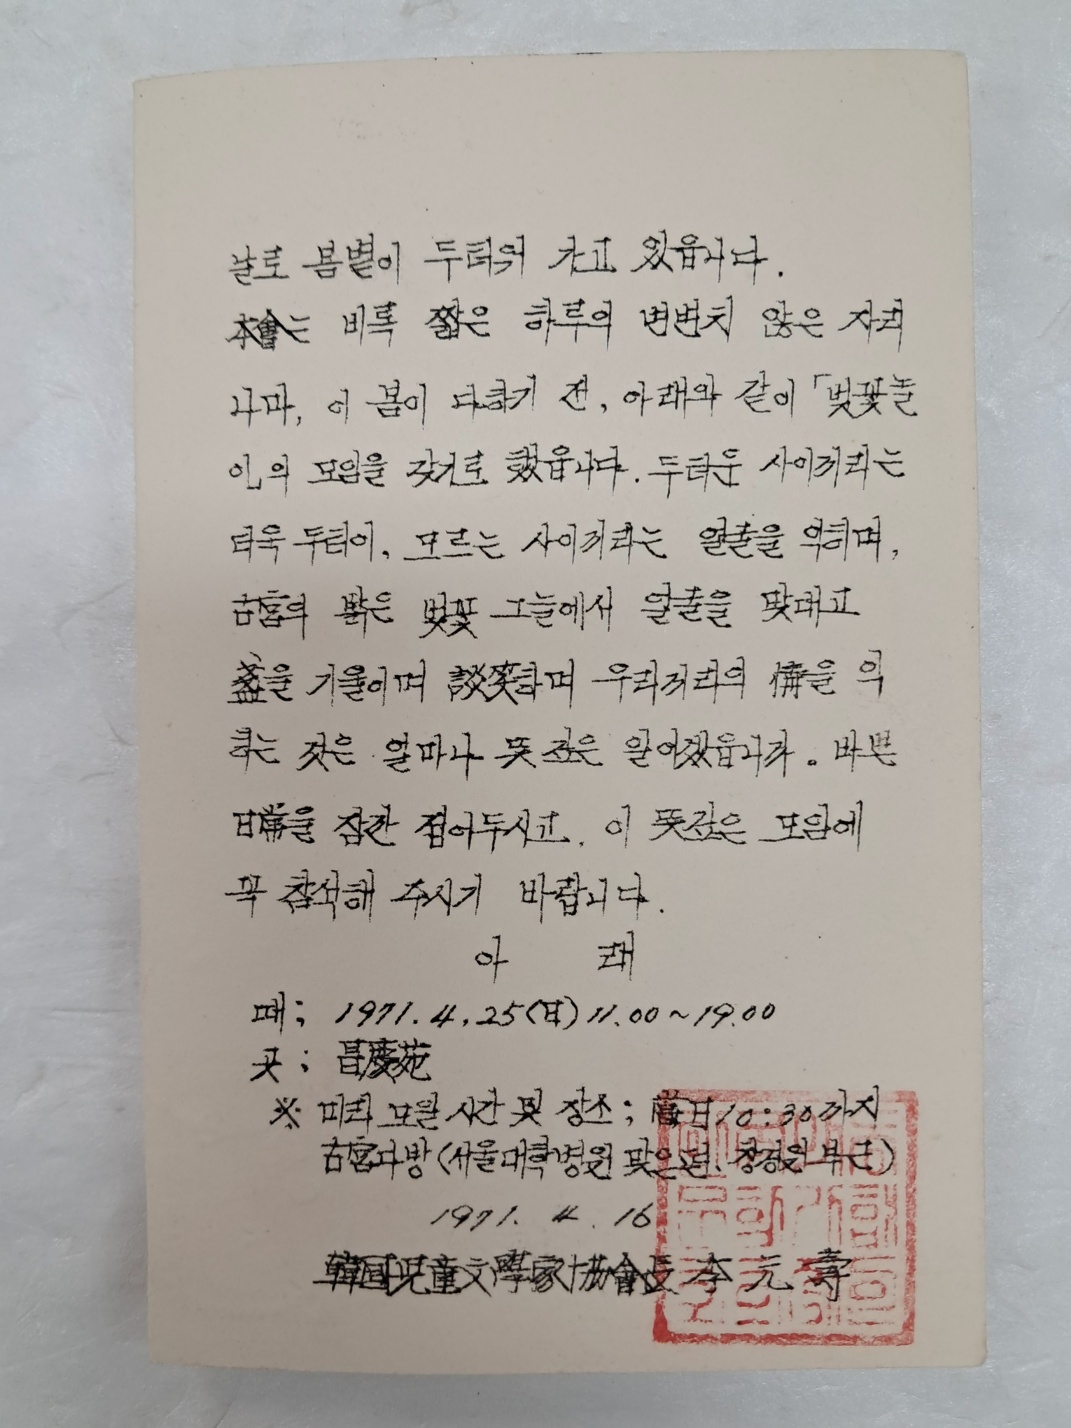 날로 봄볕이 두터워 가고 있읍니다.
本會는 비록 짧은 하루의 변변치 않은 자리
나마, 이 봄이 다하기 전, 아래와 같이 「벚꽃놀
이」의 모임을 갖기로 했읍니다. 두터운 사이끼리는
더욱 두터이, 모르는 사이끼리는 얼굴을 익히며,
古宮의 밝은 벚꽃 그늘에서 얼굴을 맞대고
盞을 기울이며 談笑하며 우리끼리의 情을 익
히는 것은 얼마나 뜻 깊은 일이겠읍니까. 바쁜
日常을 잠깐 접어두시고, 이 뜻깊은 모임에
꼭 참석해 주시기 바랍니다.
아 래
때; 1971.4.25(日) 11.00~19.00
곳; 昌慶苑
※ 미리 모일 시간 및 장소; 當日 10:30까지
古宮다방(서울대학병원 맞은편, 창경원 부근)
1971. 4. 16
韓国児童文學家協會長 李元壽